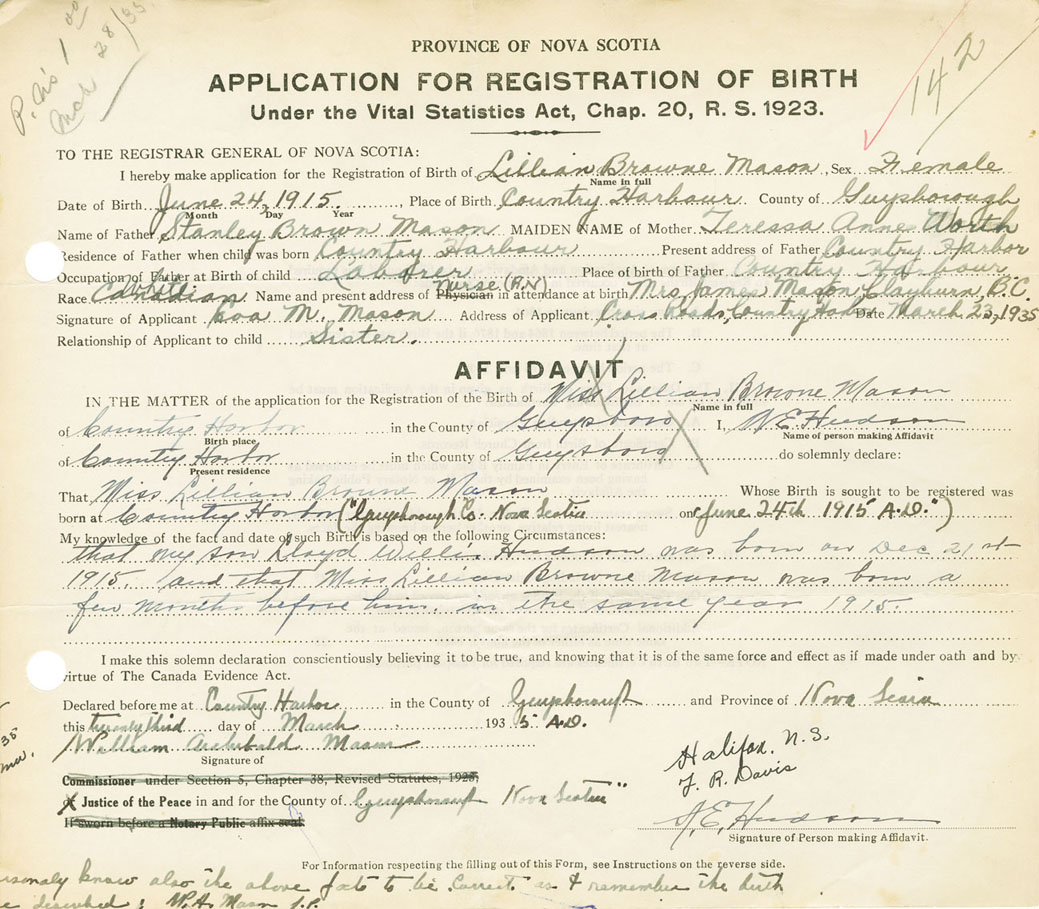 P. No 1 00
Mch 28/35
142
PROVINCE OF NOVA SCOTIA
APPLICATION FOR REGISTRATION OF BIRTH
Under the Vital Statistics Act, Chap. 20, R. S. 1923.
TO THE REGISTRAR GENERAL OF NOVA SCOTIA:
I hereby make application for the Registration of Birth of Lillian Browne Mason, Sex Female
Name in full
Date of Birth June 24, 1915, Place of Birth Country Harbour County of Guysborough
Month Day Year
Name of Father Stanley Brown Mason MAIDEN NAME of Mother Teressa Anne Worth
Residence of Father when child was born Country Harbour Present address of Father Country Harbor
Occupation of Father at Birth of child Laborer Place of birth of Father Country Harbour
White
Race Canadian Name and present address of Physician Nurse (R.N) in attendance at birth Mrs James Mason, Clayburn, B.C.
Signature of Applicant M. Mason Address of Applicant Cross Roads, Country Harbor Date March 23, 1935
Relationship of Applicant to child Sister.
AFFIDAVIT
IN THE MATTER of the application for the Registration of the Birth of Miss Lillian Browne Mason
Name in full
of Country Harbor in the County of Guysboro I, A E Hudson
Birth place Name of person making Affidavit
of Country Harbor in the County of Guysboro do solemnly declare:
Present residence
That Miss Lillian Browne Mason Whose Birth is sought to be registered was
born at Country Harbor ("Guysborough Co. Nova Scotia on June 24th 1915 A.D.")
My knowledge of the fact and date of such Birth is based on the following Circumstances:
that my son Lloyd Willis Hudson was born on Dec 21st
1915. and that Miss Lillian Browne Mason was born a
few months before him, in the same year 1915.
I make this solemn declaration conscientiously believing it to be true, and knowing that it is of the same force and effect as if made under oath and by
virtue of The Canada Evidence Act.
Declared before me at Country Harbor in the County of Guysborough and Province of Nova Scotia
this twenty third day of March 1935 A.D.
William Archibald Mason
Signature of
Halifax, N.S.
F. R. Davis
Commissioner under Section 5, Chapter 38, Revised Statutes, 1923,
X Justice of the Peace in and for the County of Guysborough Nova Scotia"
If sworn before a Notary Public affix seal
A. E. Hudson
Signature of Person making Affidavit.
For Information respecting the filling out of this Form, see Instructions on the reverse side.
know also the above facts to be correct as I remember the birth
described; W. A. Mason J.P.
35